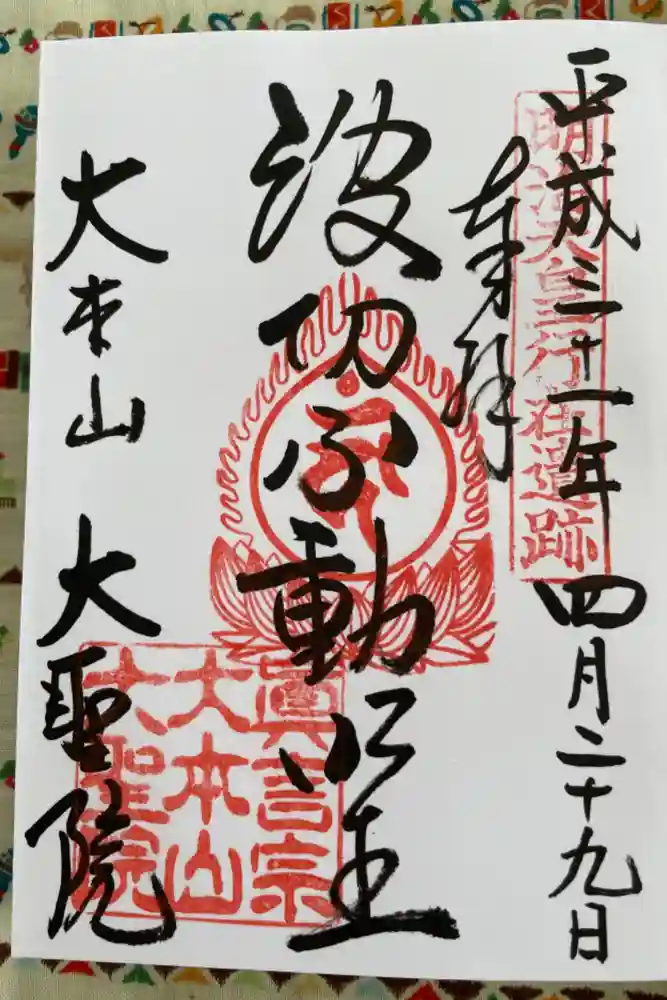 平成三十一年四月二十九日
明治天皇行在遺跡
奉拝
波切不動明王
大本山 大聖院
眞言宗
大本山
大聖院